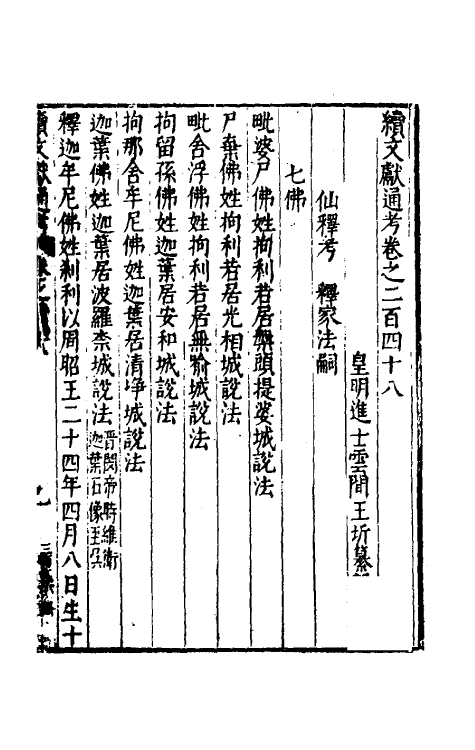 續文獻通考卷之二百四十八
皇明進士雲間王圻纂
仙釋考　釋家法嗣
七佛
毗婆尸佛姓拘利若居槃頭提婆城說法
尸棄佛姓拘利若居光相城說法
毗舍浮佛姓拘利若居無喻城說法
拘留孫佛姓迦葉居安和城說法
拘那舍牟尼佛姓迦葉居清淨城說法
迦葉佛姓迦葉居波羅柰城說法晋閔帝時維衛迦葉石像至吳
釋迦牟尼佛姓剎利以周昭王二十四年四月八日生十
續文獻通考